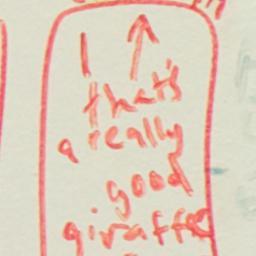 that's
a really
good
giraffe